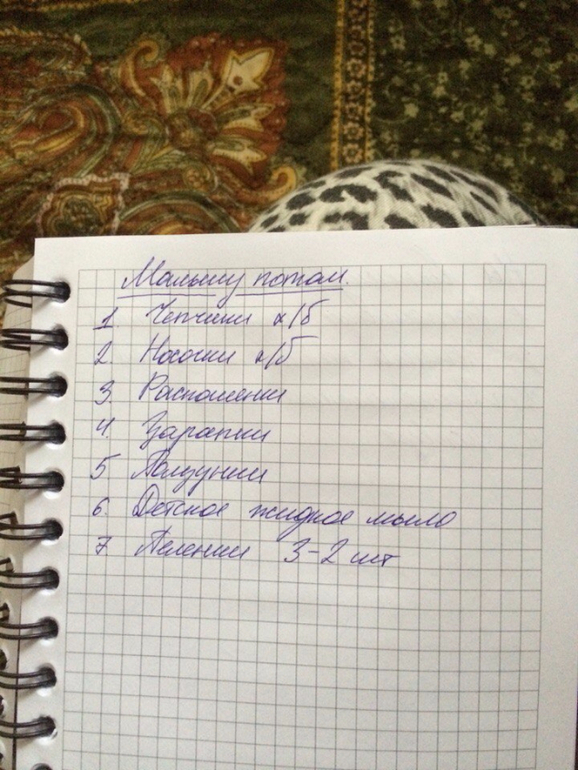 Малышу потом.
1 Чепчики х/б
2. Носочки х/б
3. Распашенки
4. Царапки
5 Ползунки
6. Детское жидкое мыло
7 Пеленки 3-2 шт